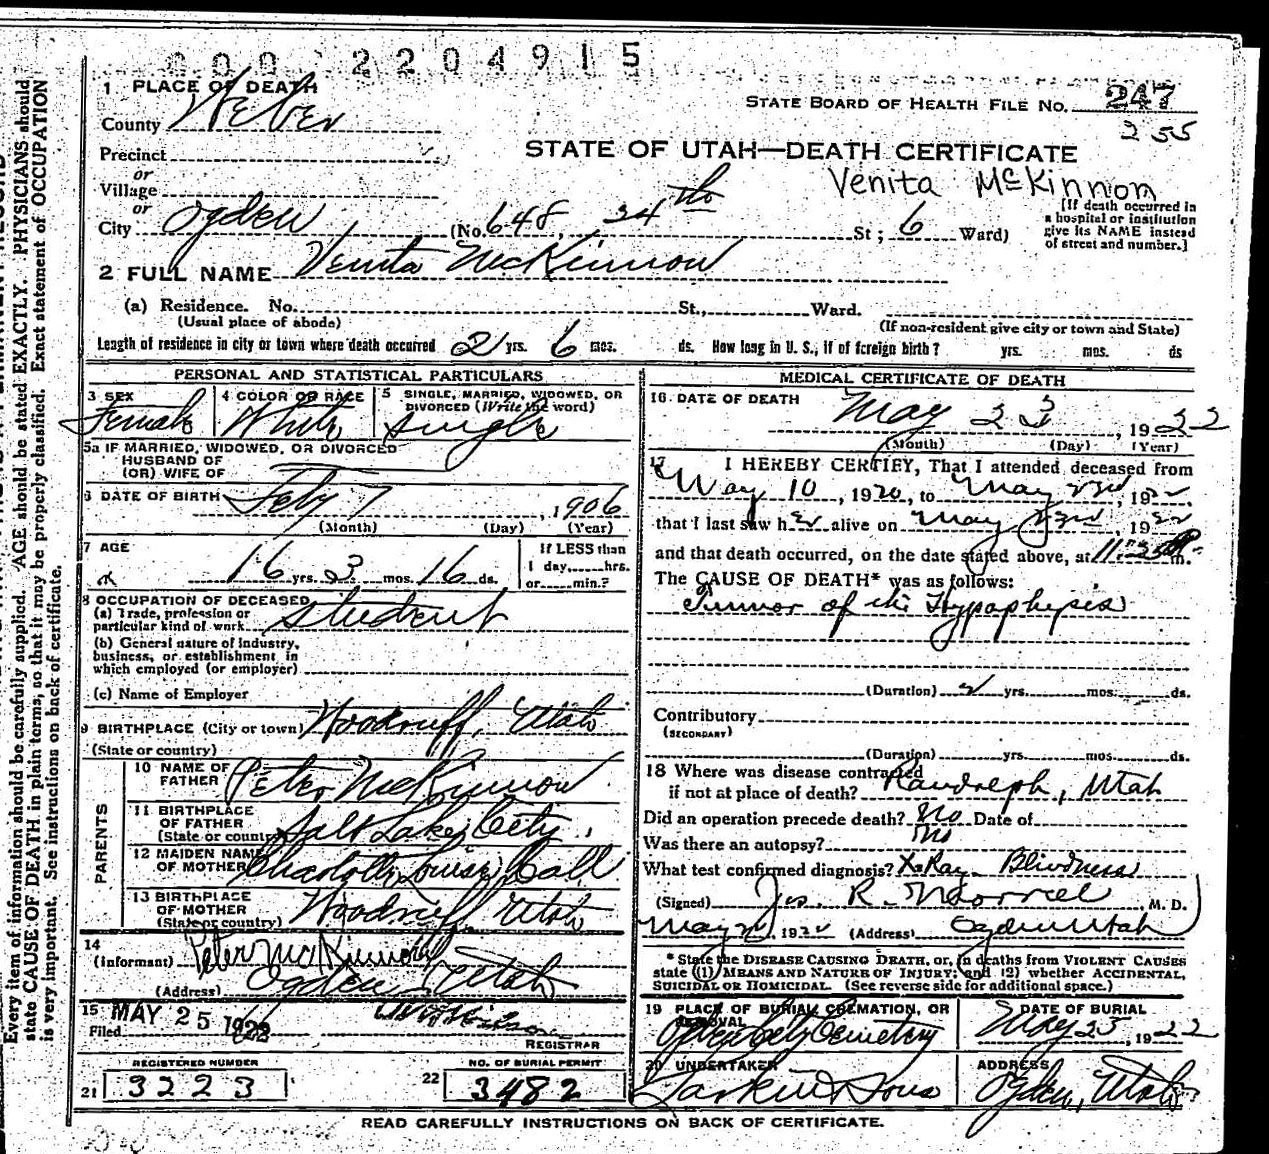 000 2204915
1 PLACE OF DEATH
County Weber
STATE BOARD OF HEALTH FILE NO. 247
255
Precinct
or
STATE OF UTAH—DEATH CERTIFICATE
Village
or
Venita McKinnon
City Ogden (No. 648, 34th St; 6 Ward)
[If death occurred in
a hospital or institution
give its NAME instead
of street and number.]
2 FULL NAME Venita McKinnon
(a) Residence. No. St., Ward.
(Usual place of abode) (If non-resident give city or town and State)
Length of residence in city or town where death occurred 2 yrs. 6 mos. ds. How long in U. S., if of foreign birth? yrs. mos. ds
PERSONAL AND STATISTICAL PARTICULARS
3 SEX 4 COLOR OR RACE 5 SINGLE, MARRIED, WIDOWED, OR
DIVORCED (Write the word)
Female White Single
5a IF MARRIED, WIDOWED, OR DIVORCED
HUSBAND OF
(OR) WIFE OF
6 DATE OF BIRTH Feby 7, 1906
(Month) (Day) (Year)
7 AGE 16 yrs. 3 mos. 16 ds.
If LESS than
1 day, hrs.
or min.?
8 OCCUPATION OF DECEASED
(a) Trade, profession or
particular kind of work Student
(b) General nature of industry,
business, or establishment in
which employed (or employer)
(c) Name of Employer
9 BIRTHPLACE (City or town) Woodruff, Utah
(State or country)
PARENTS
10 NAME OF
FATHER Peter McKinnon
11 BIRTHPLACE
OF FATHER
(State or country) Salt Lake City.
12 MAIDEN NAME
OF MOTHER Charlotte Louise Call
13 BIRTHPLACE
OF MOTHER
(State or country) Woodruff, Utah
14
(Informant) Peter McKinnon
(Address) Ogden, Utah
15 MAY 25 1922
Filed
REGISTRAR
REGISTERED NUMBER NO. OF BURIAL PERMIT
21 3223 22 3482
MEDICAL CERTIFICATE OF DEATH
16 DATE OF DEATH May 23, 1922
(Month) (Day) (Year)
17 I HEREBY CERTIFY, That I attended deceased from
May 10, 1920, to May 23rd, 1922
that I last saw her alive on May 23rd 1922
and that death occurred, on the date stated above, at 11:25 P. m.
The CAUSE OF DEATH* was as follows:
Tumor of the Hypophysis
(Duration) 2 yrs. mos. ds.
Contributory
(SECONDARY)
(Duration) yrs. mos. ds.
18 Where was disease contracted
if not at place of death? Randolph, Utah
Did an operation precede death? No Date of
Was there an autopsy? No
What test confirmed diagnosis? X-Ray - Blindness
(Signed) Jos. R. Morrell, M. D.
May, 1922 (Address) Ogden Utah
* State the DISEASE CAUSING DEATH, or, in deaths from VIOLENT CAUSES
state (1) MEANS AND NATURE OF INJURY; and (2) whether ACCIDENTAL,
SUICIDAL OR HOMICIDAL. (See reverse side for additional space.)
19 PLACE OF BURIAL, CREMATION, OR
REMOVAL DATE OF BURIAL
Ogden City Cemetery May 25, 1922
20 UNDERTAKER ADDRESS
Larkin & Sons Ogden, Utah
READ CAREFULLY INSTRUCTIONS ON BACK OF CERTIFICATE.
Every item of information should be carefully supplied. AGE should be stated EXACTLY. PHYSICIANS should
state CAUSE OF DEATH in plain terms, so that it may be properly classified. Exact statement of OCCUPATION
is very important. See instructions on back of certificate.